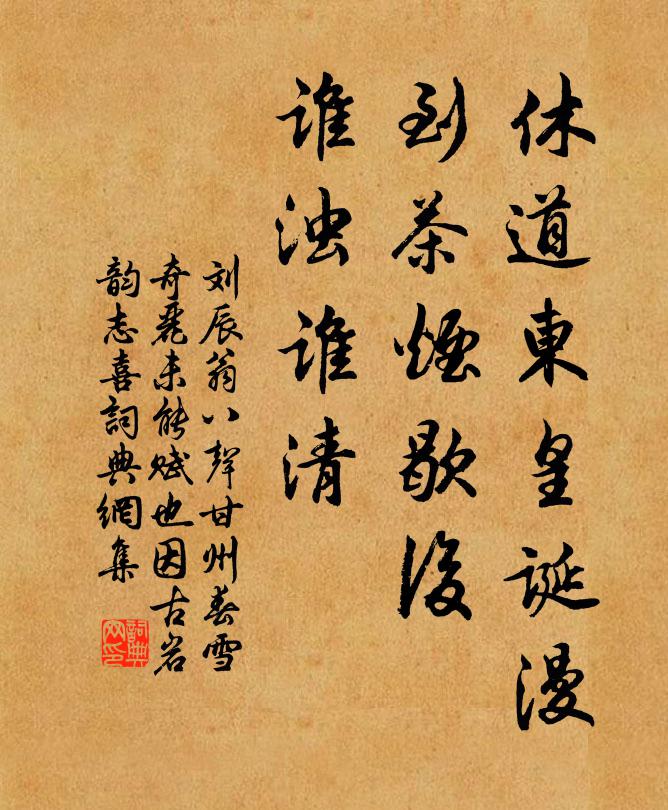 休道東皇誕漫
到茶煙歇後
誰浊誰清
刘辰翁八聲甘州春雪
奇麗未能赋也因古岩
韵志喜詞典網集
詞典网印